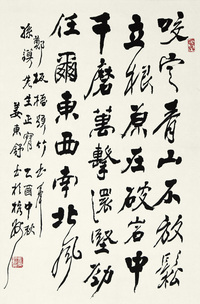 咬定青山不放鬆
立根原在破岩中
千磨萬擊還堅勁
任爾東西南北風
鄭板橋頌竹
孫 先生正 乙酉中秋
姜東舒書於杭州